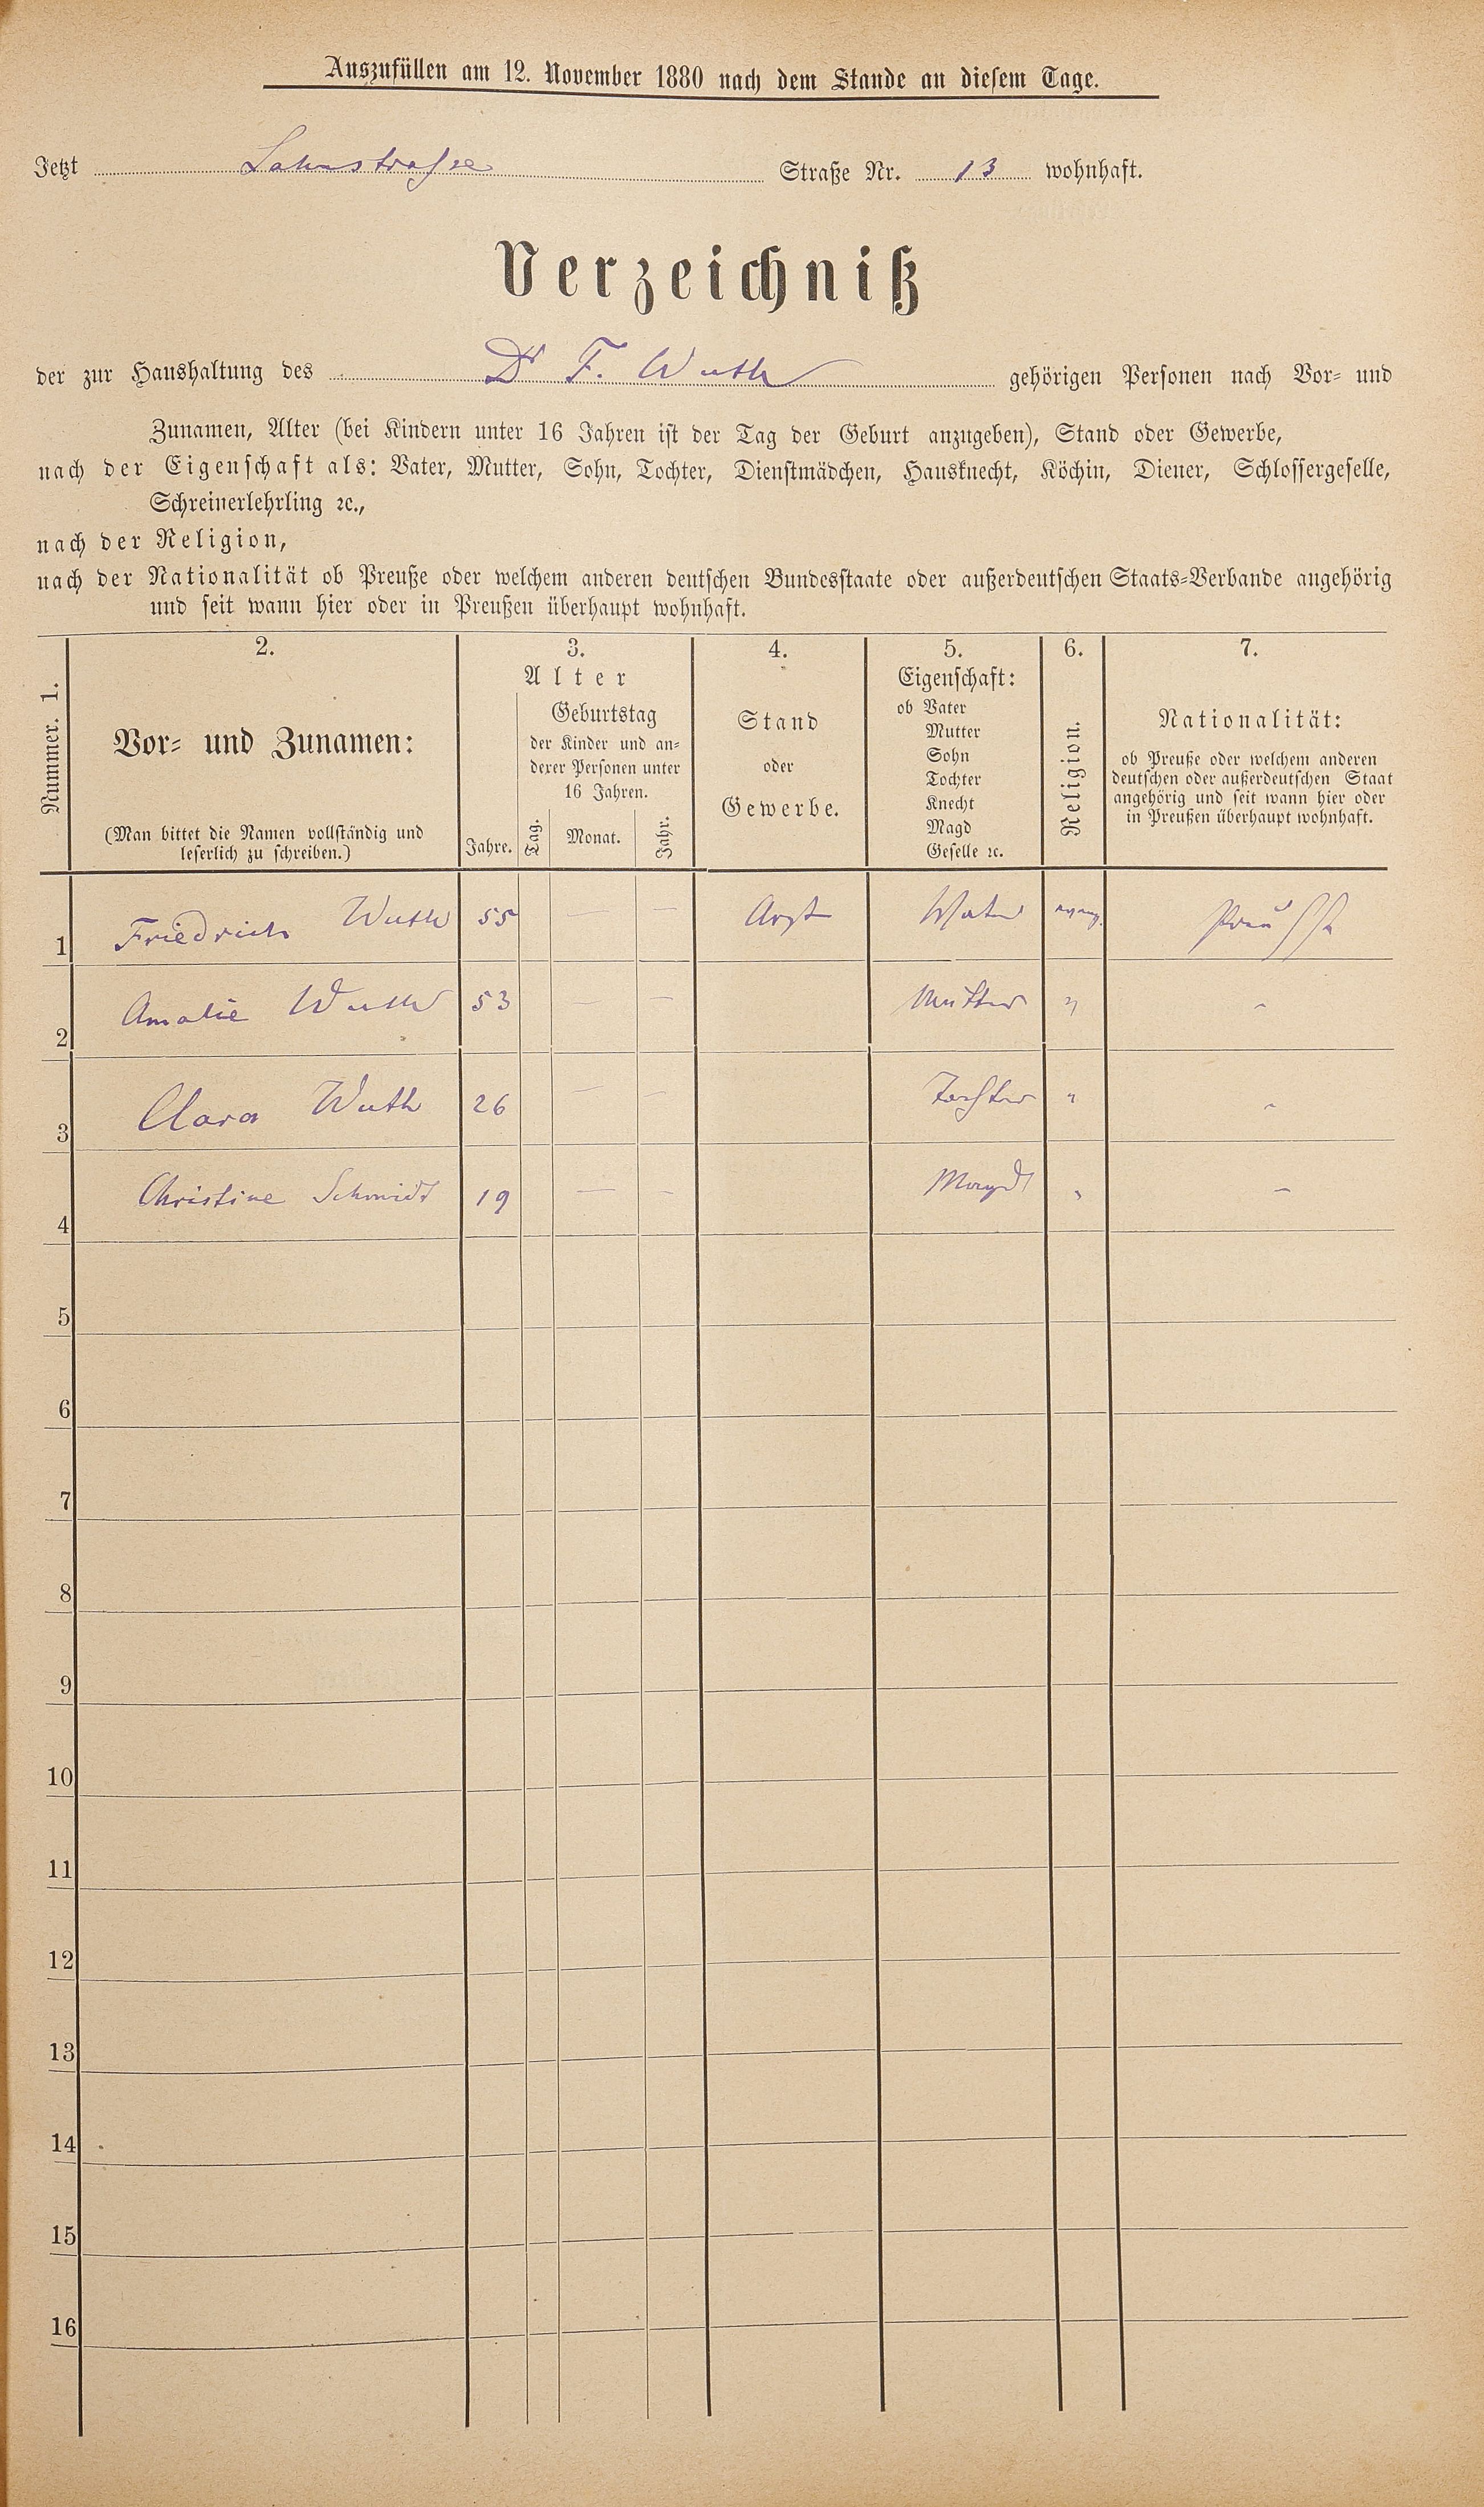 Auszufüllen am 12. November 1880 nach dem Stande an diesem Tage.
Jetzt Lahnstraße Straße Nr. 13 wohnhaft.
Verzeichniß
der zur Haushaltung des Dr F. Wuth gehörigen Personen nach Vor- und
Zunamen, Alter (bei Kindern unter 16 Jahren ist der Tag der Geburt anzugeben), Stand oder Gewerbe,
nach der Eigenschaft als: Vater, Mutter, Sohn, Tochter, Dienstmädchen, Hausknecht, Köchin, Diener, Schlossergeselle,
Schreinerlehrling ꝛc.,
nach der Religion,
nach der Nationalität ob Preuße oder welchem anderen deutschen Bundesstaate oder außerdeutschen Staats-Verbande angehörig
und seit wann hier oder in Preußen überhaupt wohnhaft.
Nummer. 1.
2.
Vor- und Zunamen:
(Man bittet die Namen vollständig und
leserlich zu schreiben.)
3.
Alter
Jahre.
Geburtstag
der Kinder und an-
derer Personen unter
16 Jahren.
Tag. Monat. Jahr.
4.
Stand
oder
Gewerbe.
5.
Eigenschaft:
ob Vater
Mutter
Sohn
Tochter
Knecht
Magd
Geselle ꝛc.
6.
Religion.
7.
Nationalität:
ob Preuße oder welchem anderen
deutschen oder außerdeutschen Staat
angehörig und seit wann hier oder
in Preußen überhaupt wohnhaft.
1 Friedrich Wuth 55 — — Arzt Vater evang. Preuße
2 Amalie Wuth 53 — — Mutter " "
3 Clara Wuth 26 — — Tochter " "
4 Christine Schmidt 19 — — Magd " "
5
6
7
8
9
10
11
12
13
14
15
16